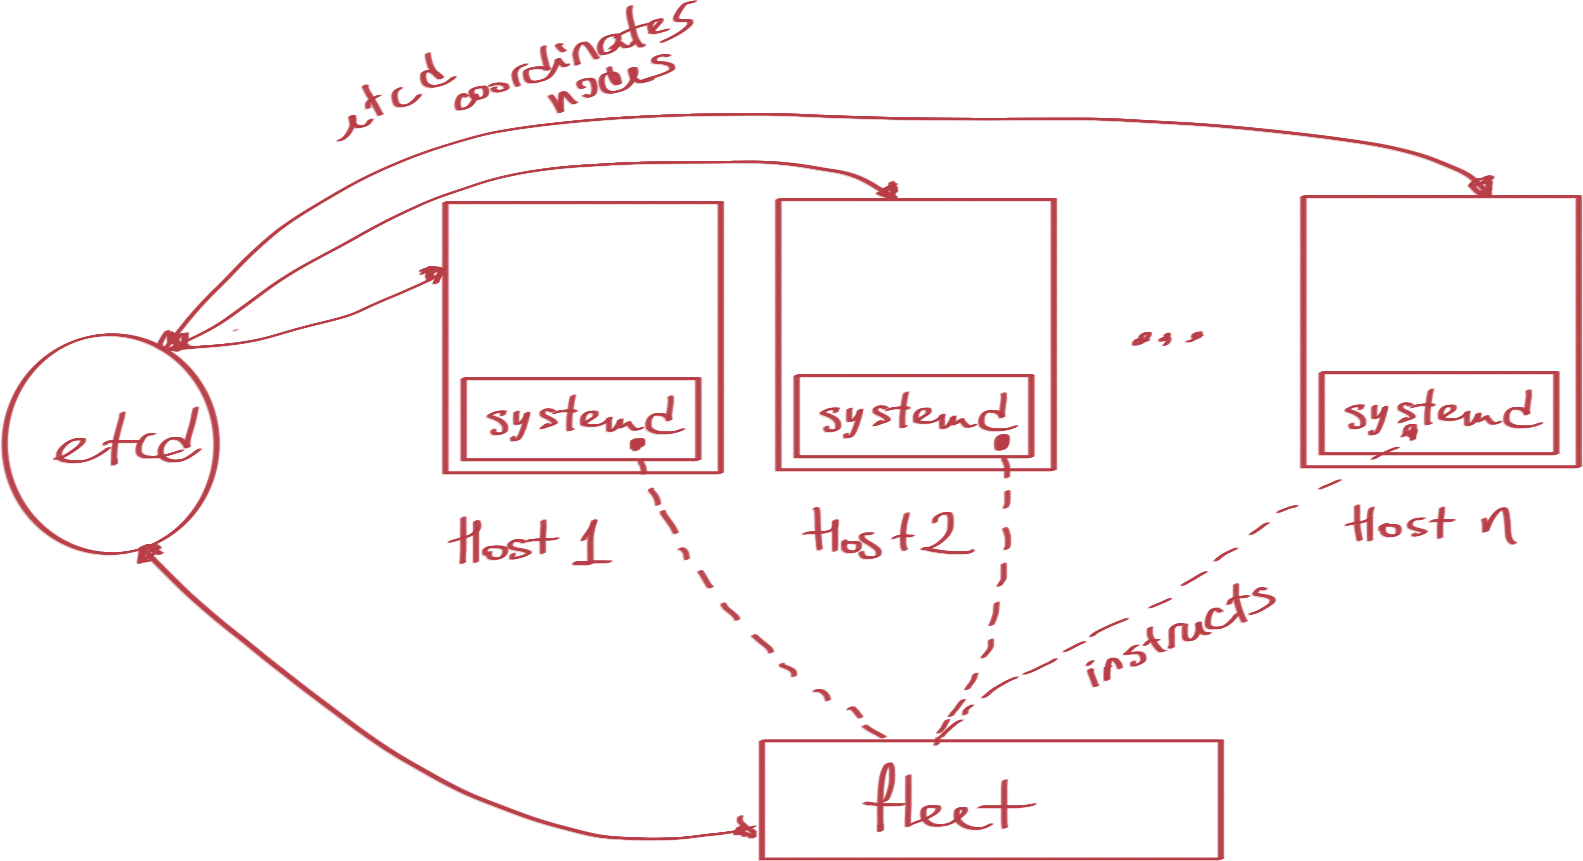 etcd coordinates
nodes
etcd
systemd
systemd
...
systemd
Host 1
Host 2
Host n
instructs
fleet